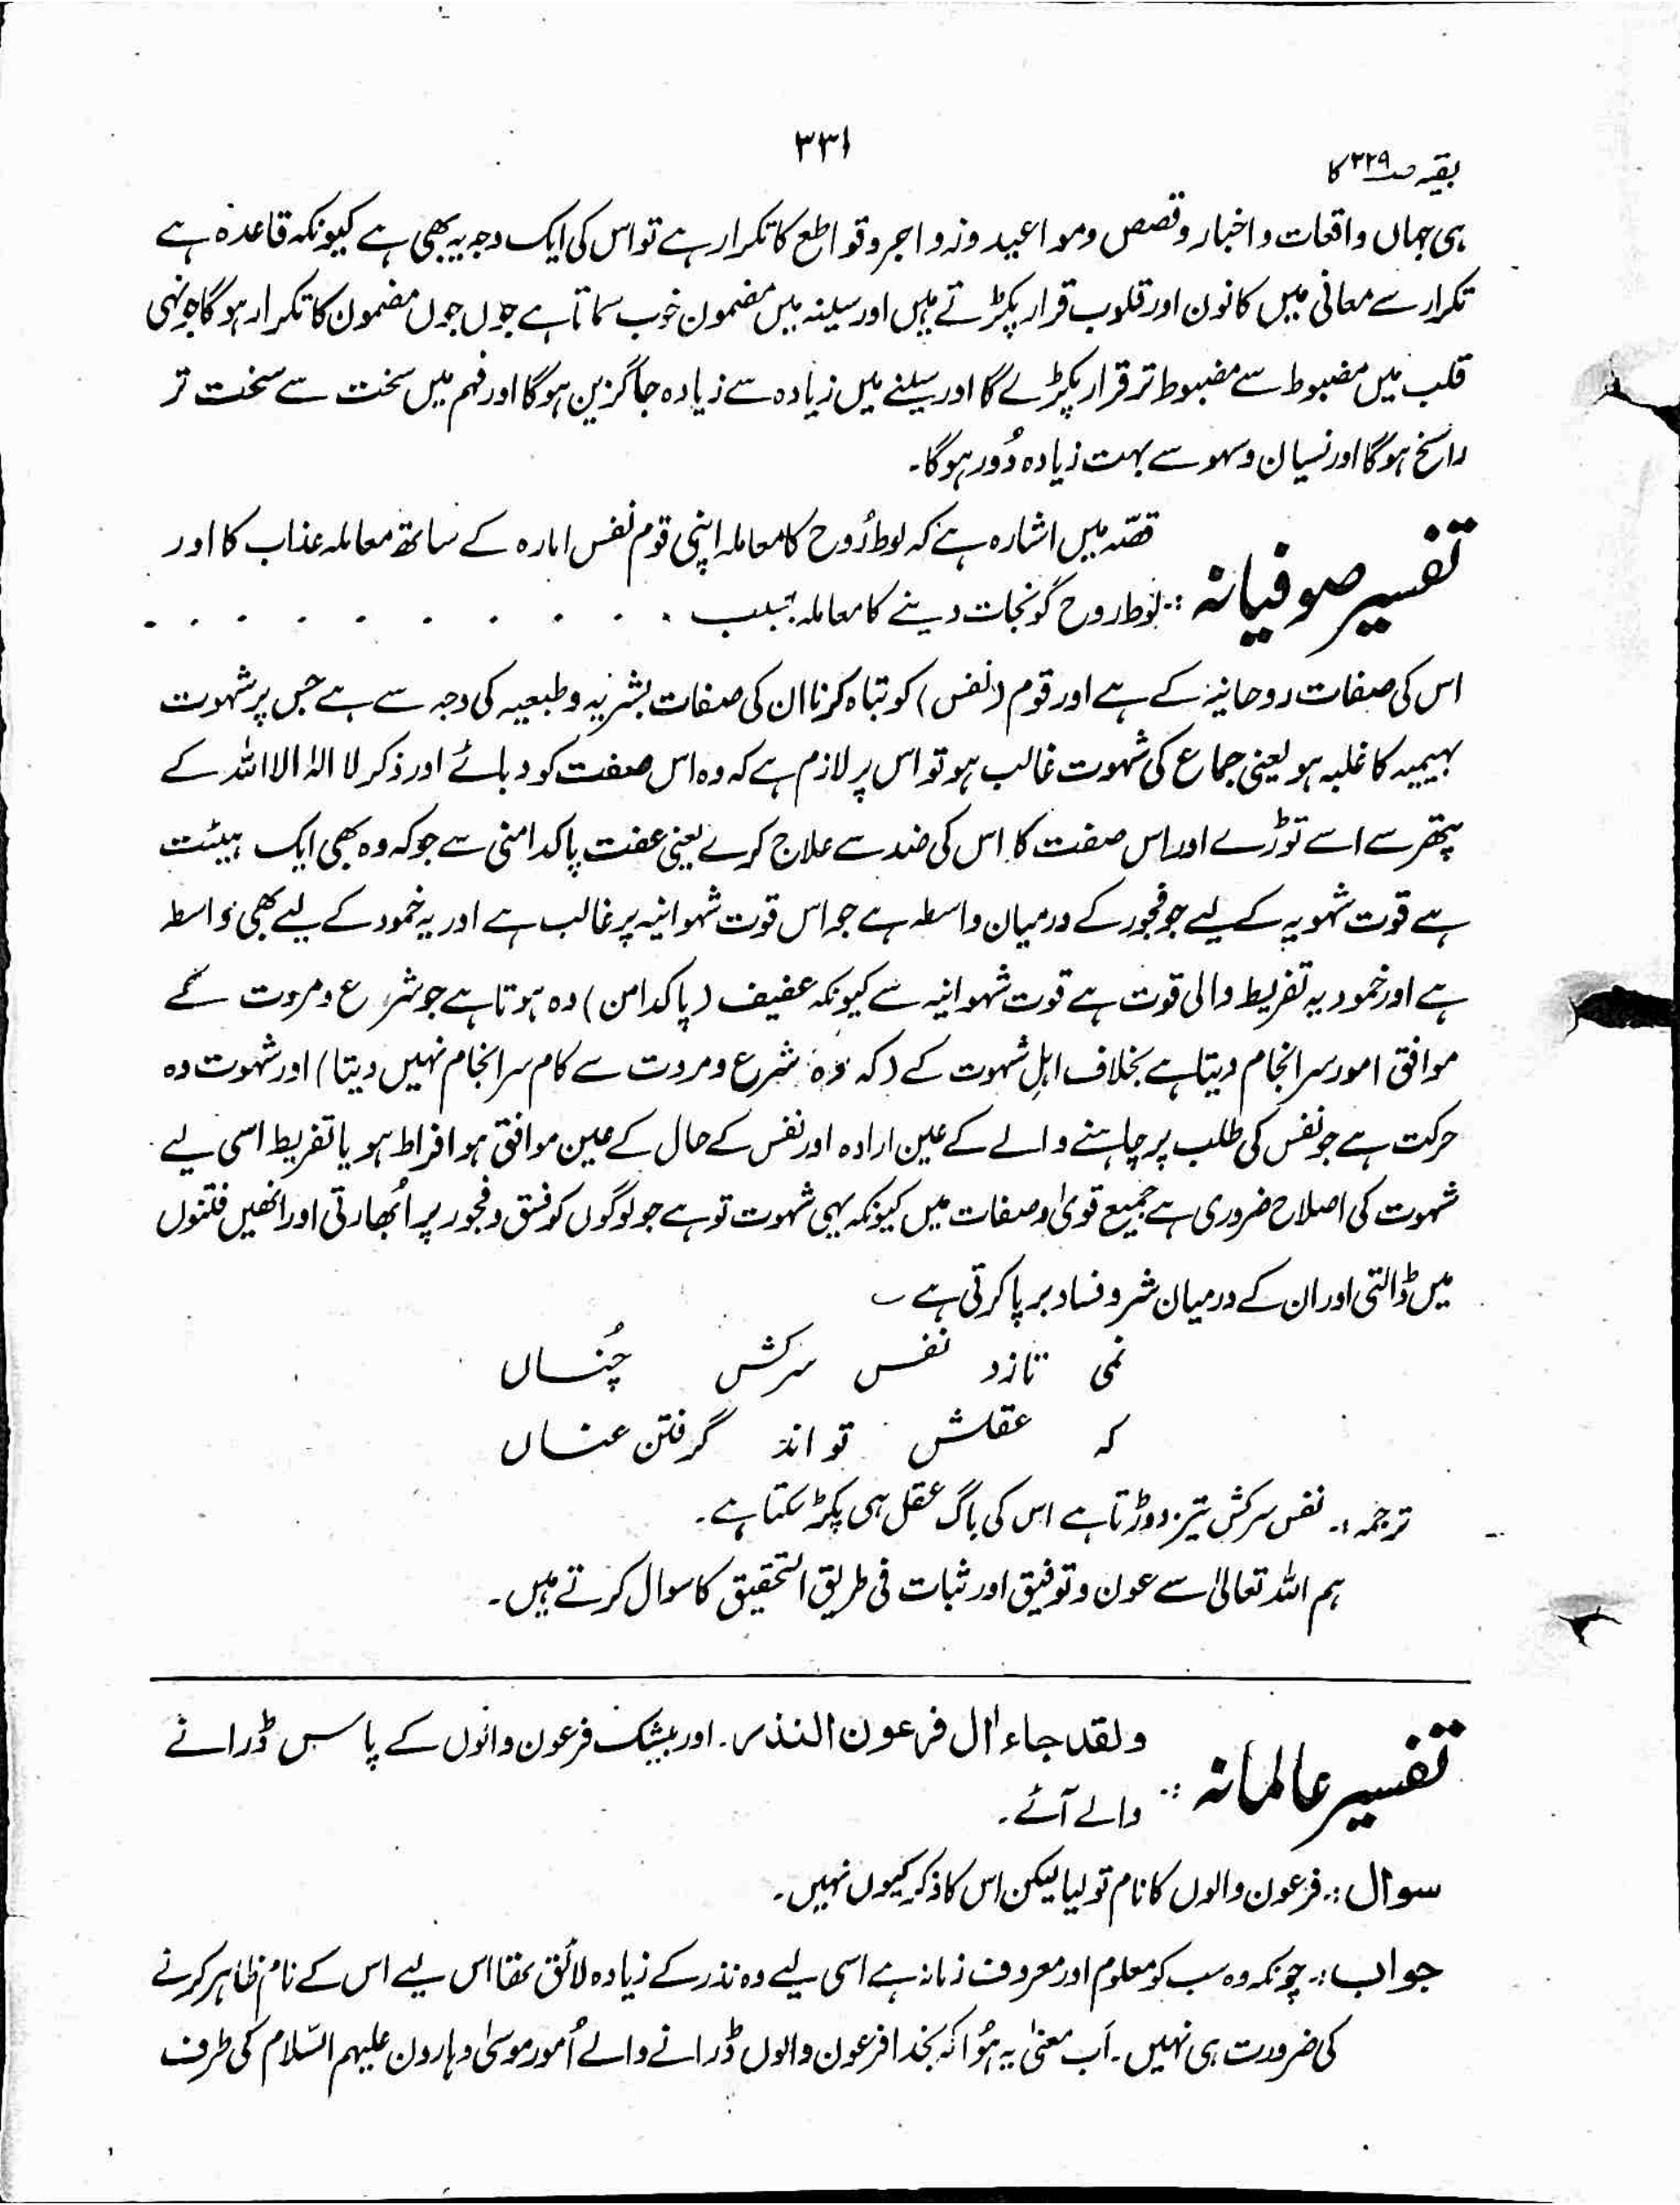 ۳۳۱
بقیہ صـ۳۲۹ کا
ہی جہاں واقعات و اخبار و قصص و مواعید وزواجر و قواطع کا تکرار ہے تو اس کی ایک وجہ یہ بھی ہے کیونکہ قاعدہ ہے
تکرار سے معانی میں کانون اور قلوب قرار پکڑتے ہیں اور سینہ میں مضمون خوب سماتا ہے جوں جوں مضمون کا تکرار ہوگا جونہی
قلب میں مضبوط سے مضبوط تر قرار پکڑے گا اور سینے میں زیادہ سے زیادہ جاگزین ہوگا اور فہم میں سخت سے سخت تر
راسخ ہوگا اور نسیان و سہو سے بہت زیادہ دُور ہوگا۔
قصّہ میں اشارہ ہے کہ لوط رُوح کا معاملہ اپنی قوم نفس امارہ کے ساتھ معاملہ عذاب کا اور
تفسیر صوفیانہ :: لوط روح کو نجات دینے کا معاملہ بسبب . . . . . . . . . .
اس کی صفات روحانیہ کے ہے اور قوم (نفس) کو تباہ کرنا ان کی صفات بشریہ و طبعیہ کی وجہ سے ہے جس پر شہوت
بہیمیہ کا غلبہ ہو یعنی جماع کی شہوت غالب ہو تو اس پر لازم ہے کہ وہ اس صفت کو دبائے اور ذکر لا الہٰ الا اللہ کے
پتھر سے اسے توڑے اور اس صفت کا اس کی ضد سے علاج کرے یعنی عفت پاکدامنی سے جو کہ وہ بھی ایک ہیئت
ہے قوت شہویہ کے لیے جو فجور کے درمیان واسطہ ہے جو اس قوت شہوانیہ پر غالب ہے اور یہ خمود کے لیے بھی واسط
ہے اور خمود یہ تفریط والی قوت ہے قوت شہوانیہ سے کیونکہ عفیف (پاکدامن) وہ ہوتا ہے جو شرع و مروت کے
موافق امور سرانجام دیتا ہے بخلاف اہلِ شہوت کے (کہ وہ شرع و مروت سے کام سرانجام نہیں دیتا) اور شہوت وہ
حرکت ہے جو نفس کی طلب پر چاہنے والے کے عین ارادہ اور نفس کے حال کے عین موافق ہو افراط ہو یا تفریط اسی لیے
شہوت کی اصلاح ضروری ہے جمیع قویٰ و صفات میں کیونکہ یہی شہوت تو ہے جو لوگوں کو فسق و فجور پر اُبھارتی اور انھیں فتنوں
میں ڈالتی اور ان کے درمیان شر و فساد برپا کرتی ہے ؎
نمی تازد نفس سرکش چُنــاں
کہ عقلش تواند گرفتن عنــاں
ترجمہ :۔ نفس سرکش تیز دوڑتا ہے اس کی باگ عقل ہی پکڑ سکتا ہے۔
ہم اللہ تعالیٰ سے عون و توفیق اور ثبات فی طریق التحقیق کا سوال کرتے ہیں۔
ولقد جاء اٰل فرعون النذر۔ اور بیشک فرعون والوں کے پاس ڈرانے
تفسیر عالمانہ :: والے آئے۔
سوال :۔ فرعون والوں کا نام تو لیا لیکن اس کا ذکر کیوں نہیں۔
جواب :۔ چونکہ وہ سب کو معلوم اور معروف زمانہ ہے اسی لیے وہ نذر کے زیادہ لائق تھا اس لیے اس کے نام ظاہر کرنے
کی ضرورت ہی نہیں۔ اَب معنیٰ یہ ہُوا کہ بخدا فرعون والوں ڈرانے والے اُمور موسیٰ و ہارون علیہم السّلام کی طرف